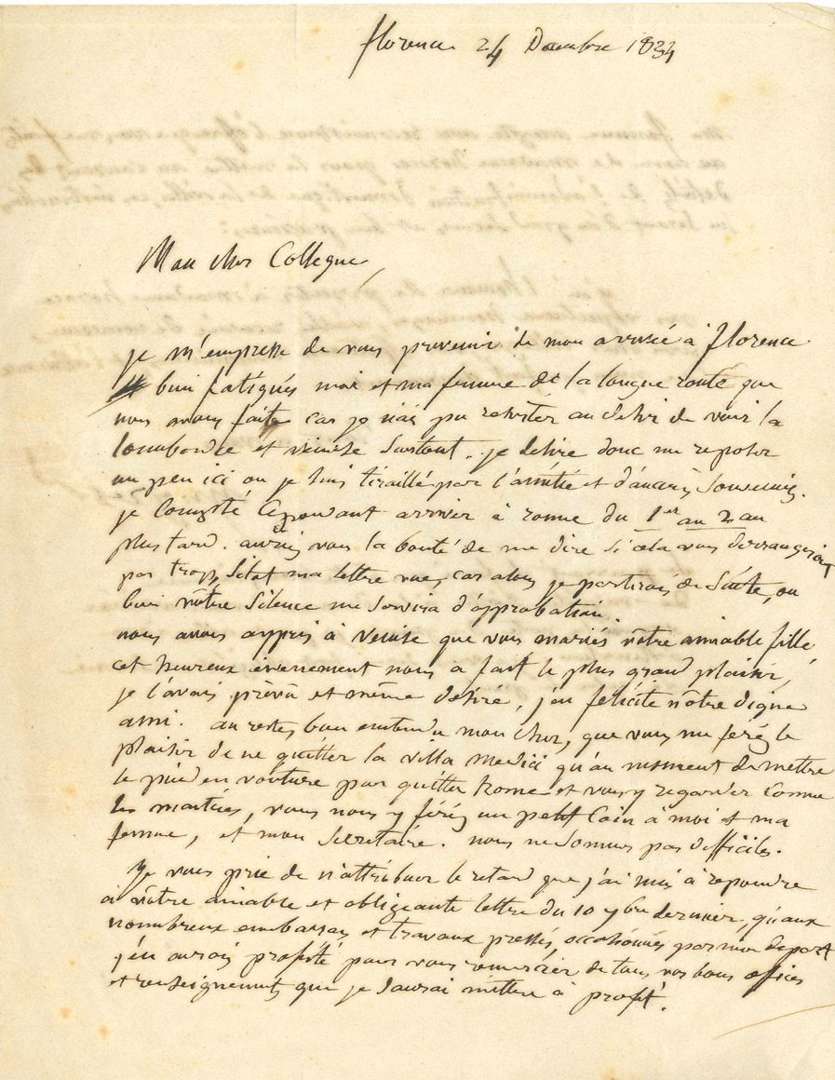 florence 24 Decembre 1834
Mon cher Collegue,
je m'empresse de vous prevenir de mon arrivée à florence
bien fatigués moi et ma femme de la longue route que
nous avons faite car je n'ai pu resister au desir de voir la
lombardie et venise surtout. je desire donc me reposer
un peu ici ou je suis tiraillé par l'amitié et d'anciens souvenirs.
je compte cependant arriver à rome du 1er au 2 au
plus tard. auriez vous la bonté de me dire si cela vous derrangeroit
par trop, sitot ma lettre vue, car alors je partirai de suite, ou
bien vôtre silence me servira d'approbation.
nous avons appris à Venise que vous mariés vôtre aimable fille
cet heureux évennement nous a fait le plus grand plaisir,
je l'avais prévû et même desiré, j'en felicite nôtre digne
ami. au reste, bien entendu mon cher, que vous me ferés le
plaisir de ne quitter la villa medici qu'au moment de mettre
le pied en voiture par quitter Rome et vous y regarder comme
les maitres, vous nous y férés un petit Coin à moi et ma
femme, et mon Secretaire. nous ne sommes pas difficiles.
Je vous prie de n'attribuer le retard que j'ai mis à repondre
à vôtre aimable et obligeante lettre du 10 9bre dernier, qu'aux
nombreux embarras et travaux pressés, occasionnés par mon depart
j'en aurois profité pour vous remercier de tous vos bons offices
et renseignements que je saurai mettre à profit.